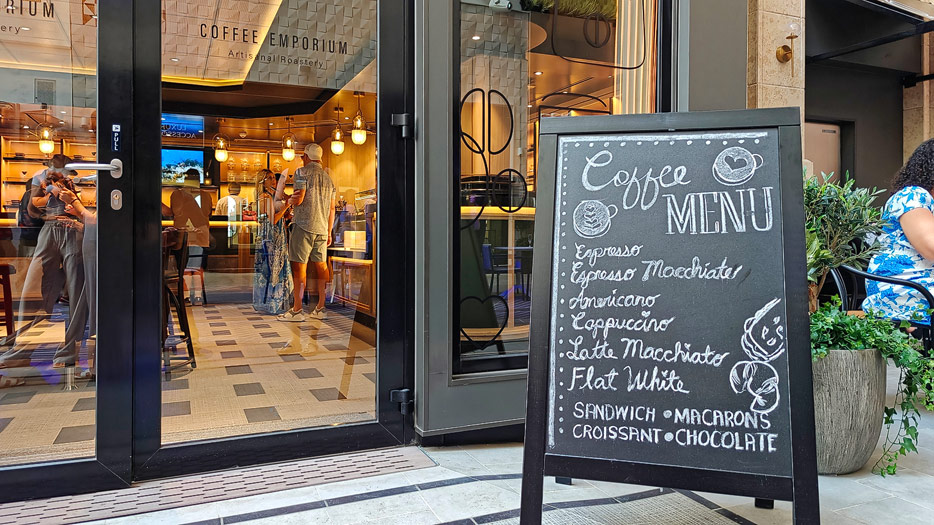 PORIUM
ery
COFFEE EMPORIUM
Artisanal Roastery
PULL
LUXUR
ACCESS
Coffee
MENU
Espresso
Espresso Macchiato
Americano
Cappuccino
Latte Macchiato
Flat White
SANDWICH • MACARONS
CROISSANT • CHOCOLATE